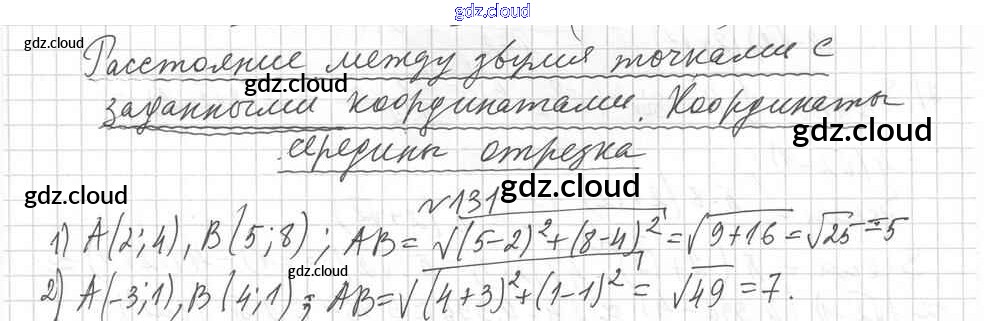 gdz.cloud
gdz.cloud
Расстояние между двумя точками с
gdz.cloud
заданными координатами. Координаты
gdz.cloud
середины отрезка
gdz.cloud
gdz.cloud
№131
1) A(2;4), B(5;8); AB=√((5-2)²+(8-4)²)=√9+16=√25=5
gdz.cloud
2) A(-3;1), B(4;1); AB=√((4+3)²+(1-1)²)=√49=7.